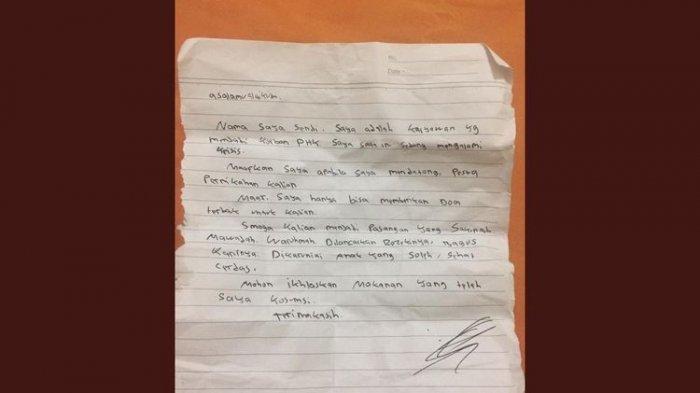 No:
Date:
assalamualaikum.
Nama Saya Sendi. Saya adalah karyawan yg
menjadi korban PHK Saya saat ini sedang mengalami
krisis.
Maafkan Saya apabila Saya mendatangi Pesta
Pernikahan kalian
Maaf. Saya hanya bisa memberikan Doa
terbaik untuk kalian
Semoga kalian menjadi Pasangan Yang Sakinah
Mawadah Warohmah Dilancarkan Rozekinya, bagus
Karirnya Dikaruniai anak Yang Soleh, Sehat
Cerdas.
Mohon ikhlaskan Makanan Yang telah
Saya konsumsi.
Terimakasih